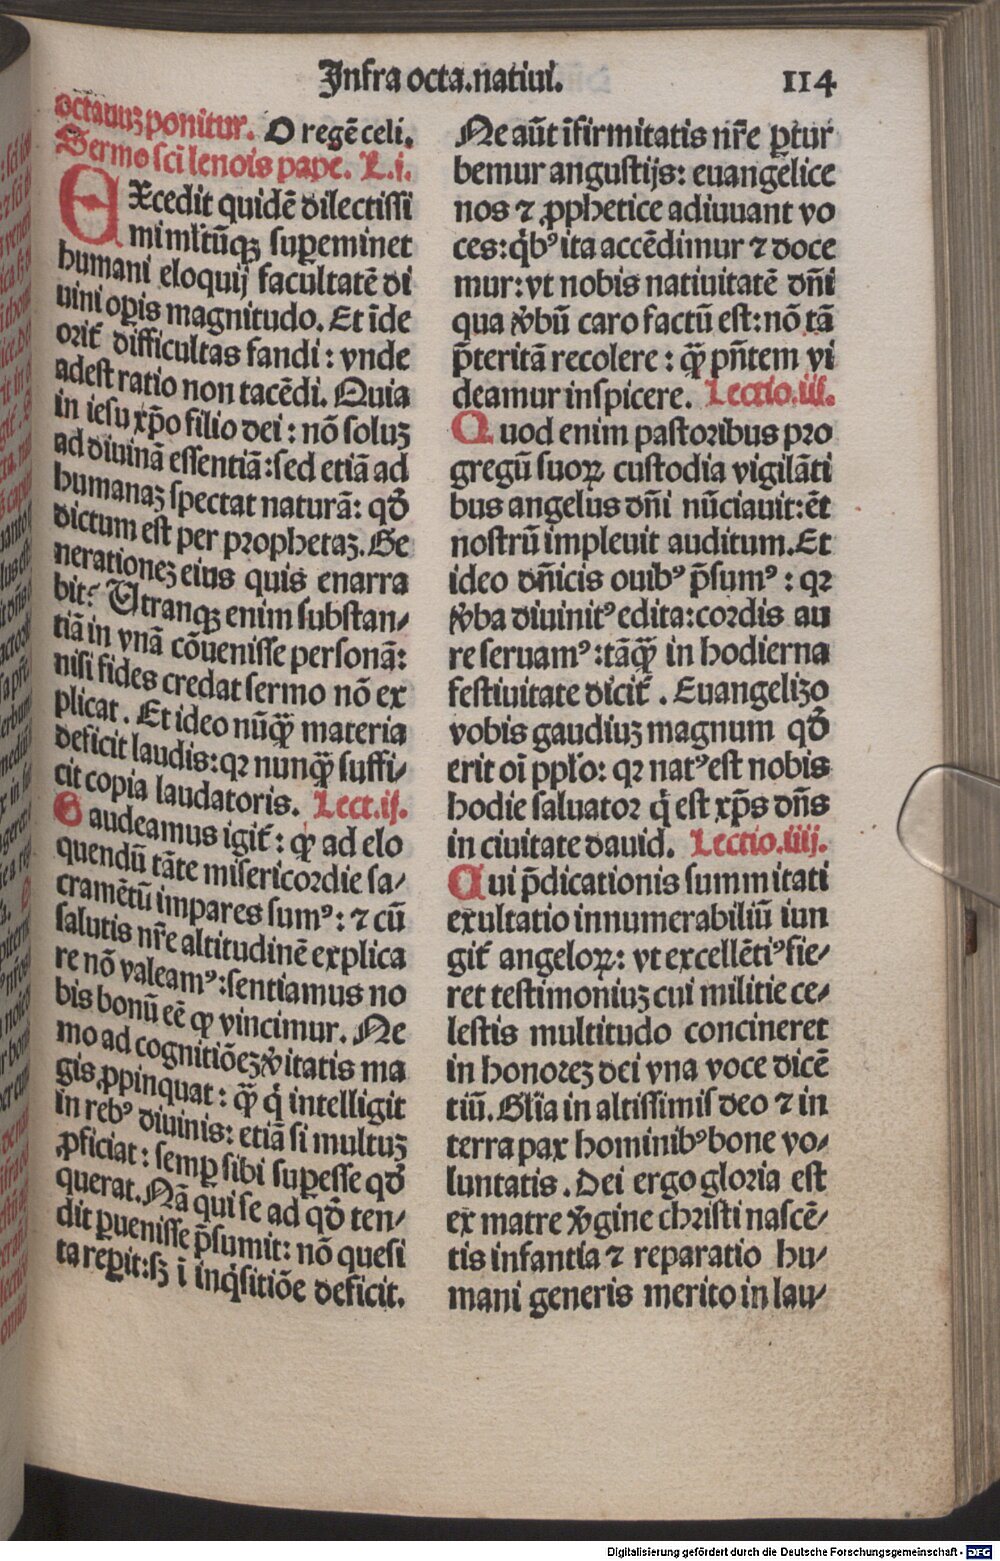 Infra octa.natiui.
114
octauuʒ ponitur. O regē celi.
Sermo sci lenois pape. L.i.
EXcedit quidē dilectissi
mi ml'tūqʒ suꝑeminet
humani eloquij facultatē di
uini oꝑis magnitudo. Et īde
orit᷑ difficultas fandi : vnde
adest ratio non tacēdi. Quia
in iesu xp̄o filio dei : nō soluʒ
ad diuinā essentiā:sed etiā ad
humanaʒ spectat naturā: qd̄
dictum est per prophetaʒ. Ge
nerationeʒ eius quis enarra
bit? Utranqʒ enim substan⸗
tiā in vnā cōuenisse personā:
nisi fides credat sermo nō ex
plicat. Et ideo nūqꝫ̄ materia
deficit laudis:qꝛ nunqꝫ̄ suffi⸗
cit copia laudatoris. Lect.ij.
Gaudeamus igit᷑ : ꝙ ad elo
quendū tāte misericordie sa⸗
cramētū impares sumꝰ: ⁊ cū
salutis nr̄e altitudinē explica
re nō valeamꝰ:sentiamus no
bis bonū eē ꝙ vincimur. Ne
mo ad cognitiōeʒ v̄itatis ma
gis ꝓpinquat : qꝫ̄ q̇ intelligit
in rebꝰ diuinis: etiā si multuʒ
ꝓficiat : semꝑ sibi suꝑesse qd̄
querat. Nā qui se ad qd̄ ten⸗
dit ꝑuenisse p̄sumit: nō quesi
ta reꝑit:sʒ ī inq̇sitiōe deficit.
Ne aūt īfirmitatis nr̄e ꝑtur
bemur angustijs: euangelice
nos ⁊ ꝓphetice adiuuant vo
ces:q̇bꝰ ita accēdimur ⁊ doce
mur:vt nobis natiuitatē dn̄i
qua v̄bū caro factū est:nō tā
p̄teritā recolere : qꝫ̄ pn̄tem vi
deamur inspicere. Lectio.iij.
Quod enim pastoribus pro
gregū suoꝝ custodia vigilāti
bus angelus dn̄i nūciauit:ēt
nostrū impleuit auditum. Et
ideo dn̄icis ouibꝰ p̄sumꝰ : qꝛ
v̄ba diuinitꝰ edita:cordis au
re seruamꝰ :tāqꝫ̄ in hodierna
festiuitate dicit᷑ . Euangelizo
vobis gaudiuʒ magnum qd̄
erit oī ppl'o: qꝛ natꝰ est nobis
hodie saluator q̇ est xp̄s dn̄s
in ciuitate dauid. Lectio.iiij.
Cui p̄dicationis summitati
exultatio innumerabiliū iun
git᷑ angeloꝝ: vt excellētiꝰ fie⸗
ret testimoniuʒ cui militie ce⸗
lestis multitudo concineret
in honoreʒ dei vna voce dicē
tiū. Gl'ia in altissimis deo ⁊ in
terra pax hominibꝰ bone vo⸗
luntatis. Dei ergo gloria est
ex matre v̄gine christi nascē⸗
tis infantia ⁊ reparatio hu⸗
mani generis merito in lau⸗
Digitalisierung gefördert durch die Deutsche Forschungsgemeinschaft - DFG